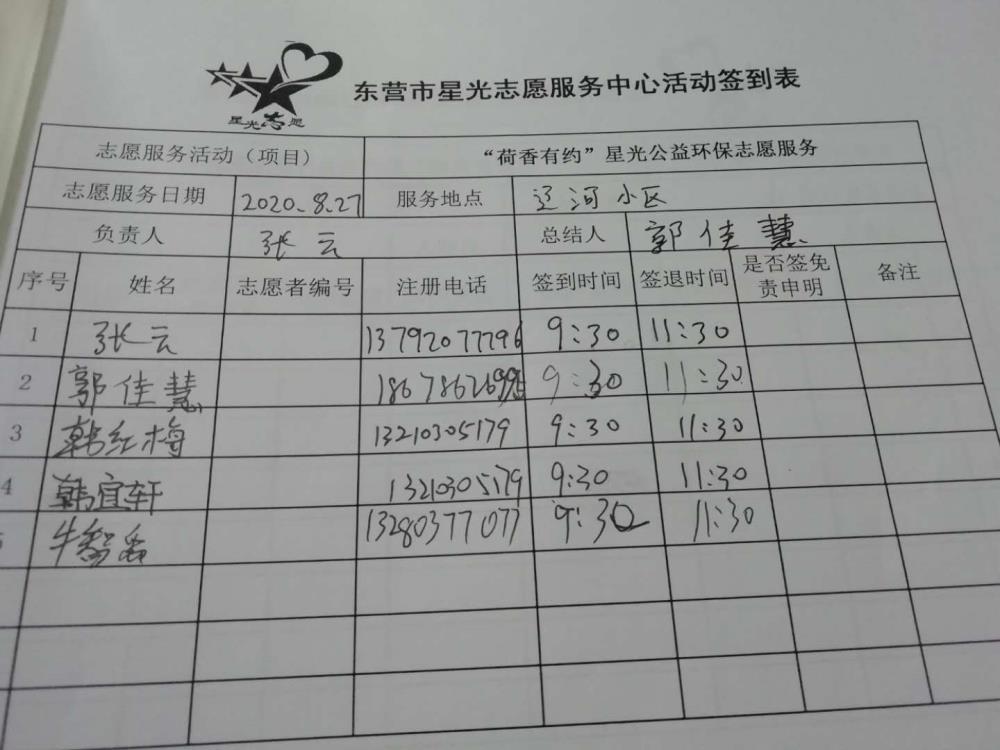 星光志愿
东营市星光志愿服务中心活动签到表
志愿服务活动（项目） “荷香有约”星光公益环保志愿服务
志愿服务日期 2020.8.27 服务地点 辽河小区
负责人 张云 总结人 郭佳慧
序号 姓名 志愿者编号 注册电话 签到时间 签退时间 是否签免责申明 备注
1 张云 13792077796 9:30 11:30
2 郭佳慧 9:30 11:30
3 韩红梅 13210305179 9:30 11:30
4 韩宜轩 13210305179 9:30 11:30
5 牛智 13280377077 9:30 11:30